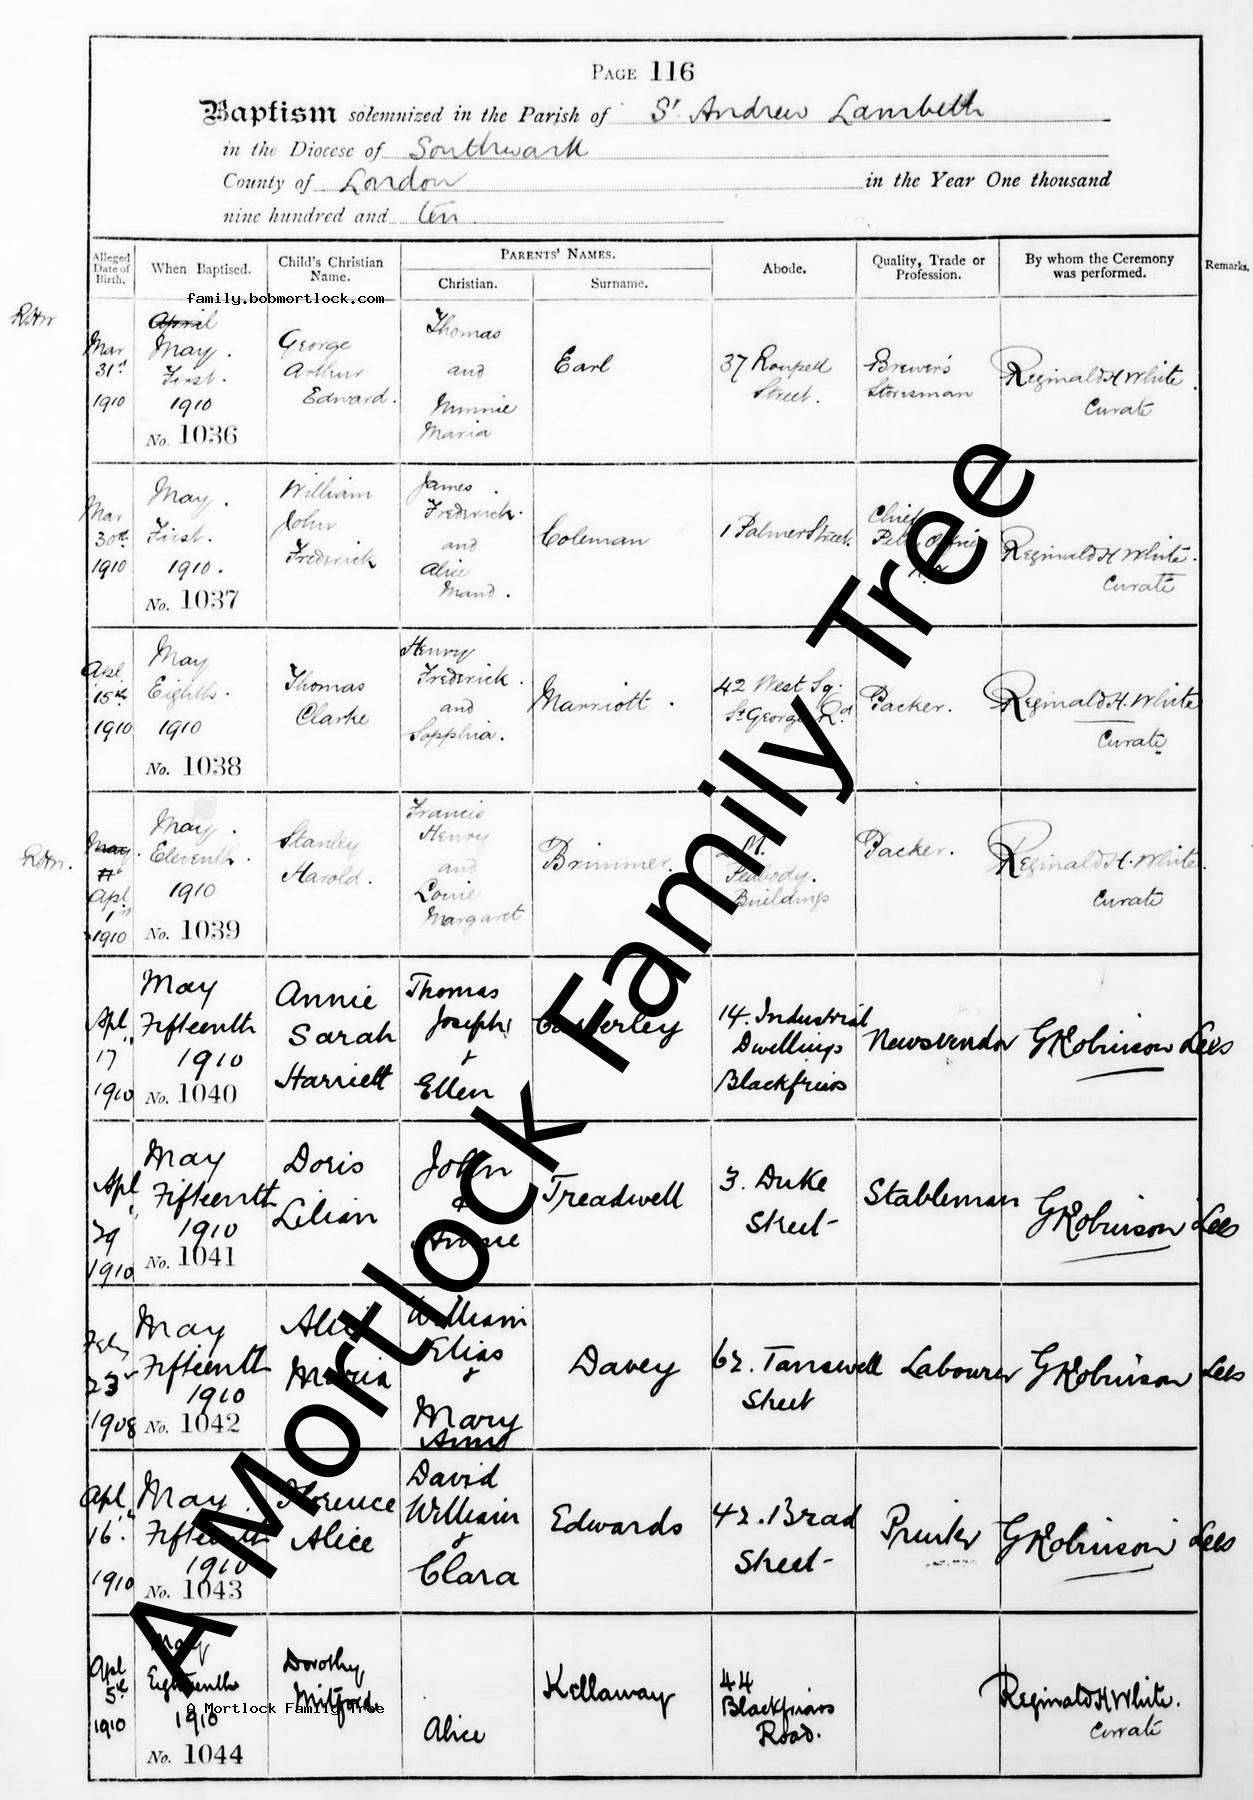 PAGE 116
Baptism solemnized in the Parish of St Andrew Lambeth
in the Diocese of Southwark
County of London in the Year One thousand
nine hundred and ten.
Alleged Date of Birth.
When Baptised.
Child's Christian Name.
PARENTS' NAMES.
Christian.
Surname.
Abode.
Quality, Trade or Profession.
By whom the Ceremony was performed.
Remarks.
family.bobmortlock.com
RHW
Mar
31st
1910
April
May.
First.
1910
No. 1036
George
Arthur
Edward.
Thomas
and
Minnie
Maria
Earl
37 Roupell
Street.
Brewer's
Storesman
Reginald H White
Curate
Mar
30th
1910
May.
First.
1910.
No. 1037
William
John
Frederick
James
Frederick.
and
Alice
Maud.
Coleman
1 Palmer Street.
Chief
Reginald H White.
Curate
Apl
15th
1910
May
Eighth.
1910
No. 1038
Thomas
Clarke
Henry
Frederick.
and
Sapphia.
Marriott.
42 West Sq.
St George Rd
Packer.
Reginald H. White
Curate
RHW.
May.
11th
Apl
1st
1910
May.
Eleventh.
1910
No. 1039
Stanley
Harold.
Francis
Henry
and
Louie
Margaret
Brimmer.
Peabody.
Buildings
Packer.
Reginald H. White.
Curate
Apl
17
1910
May
Fifteenth
1910
No. 1040
Annie
Sarah
Harriett
Thomas
Joseph
&
Ellen
14. Industrial
Dwellings
Blackfriars
Newsvendor
G Robinson Lees
Apl
29
1910
May
Fifteenth
1910
No. 1041
Doris
Lilian
John
&
Annie
Treadwell
3. Duke
Street
Stableman
G Robinson Lees
Feby
23rd
1908
May
Fifteenth
1910
No. 1042
Alice
Maria
William
Elias
&
Mary
Ann
Davey
62. Tanswell
Street
Labourer
G Robinson Lees
Apl
16.
1910
May.
Fifteenth
1910
No. 1043
Florence
Alice
David
William
&
Clara
Edwards
42. Brad
Street
Printer
G Robinson Lees
Apl
5th
1910
May
Eighteenth
1910
No. 1044
Dorothy
Mitford
Alice
Kellaway
44
Blackfriars
Road.
Reginald H White.
Curate
A Mortlock Family Tree
A Mortlock Family Tree